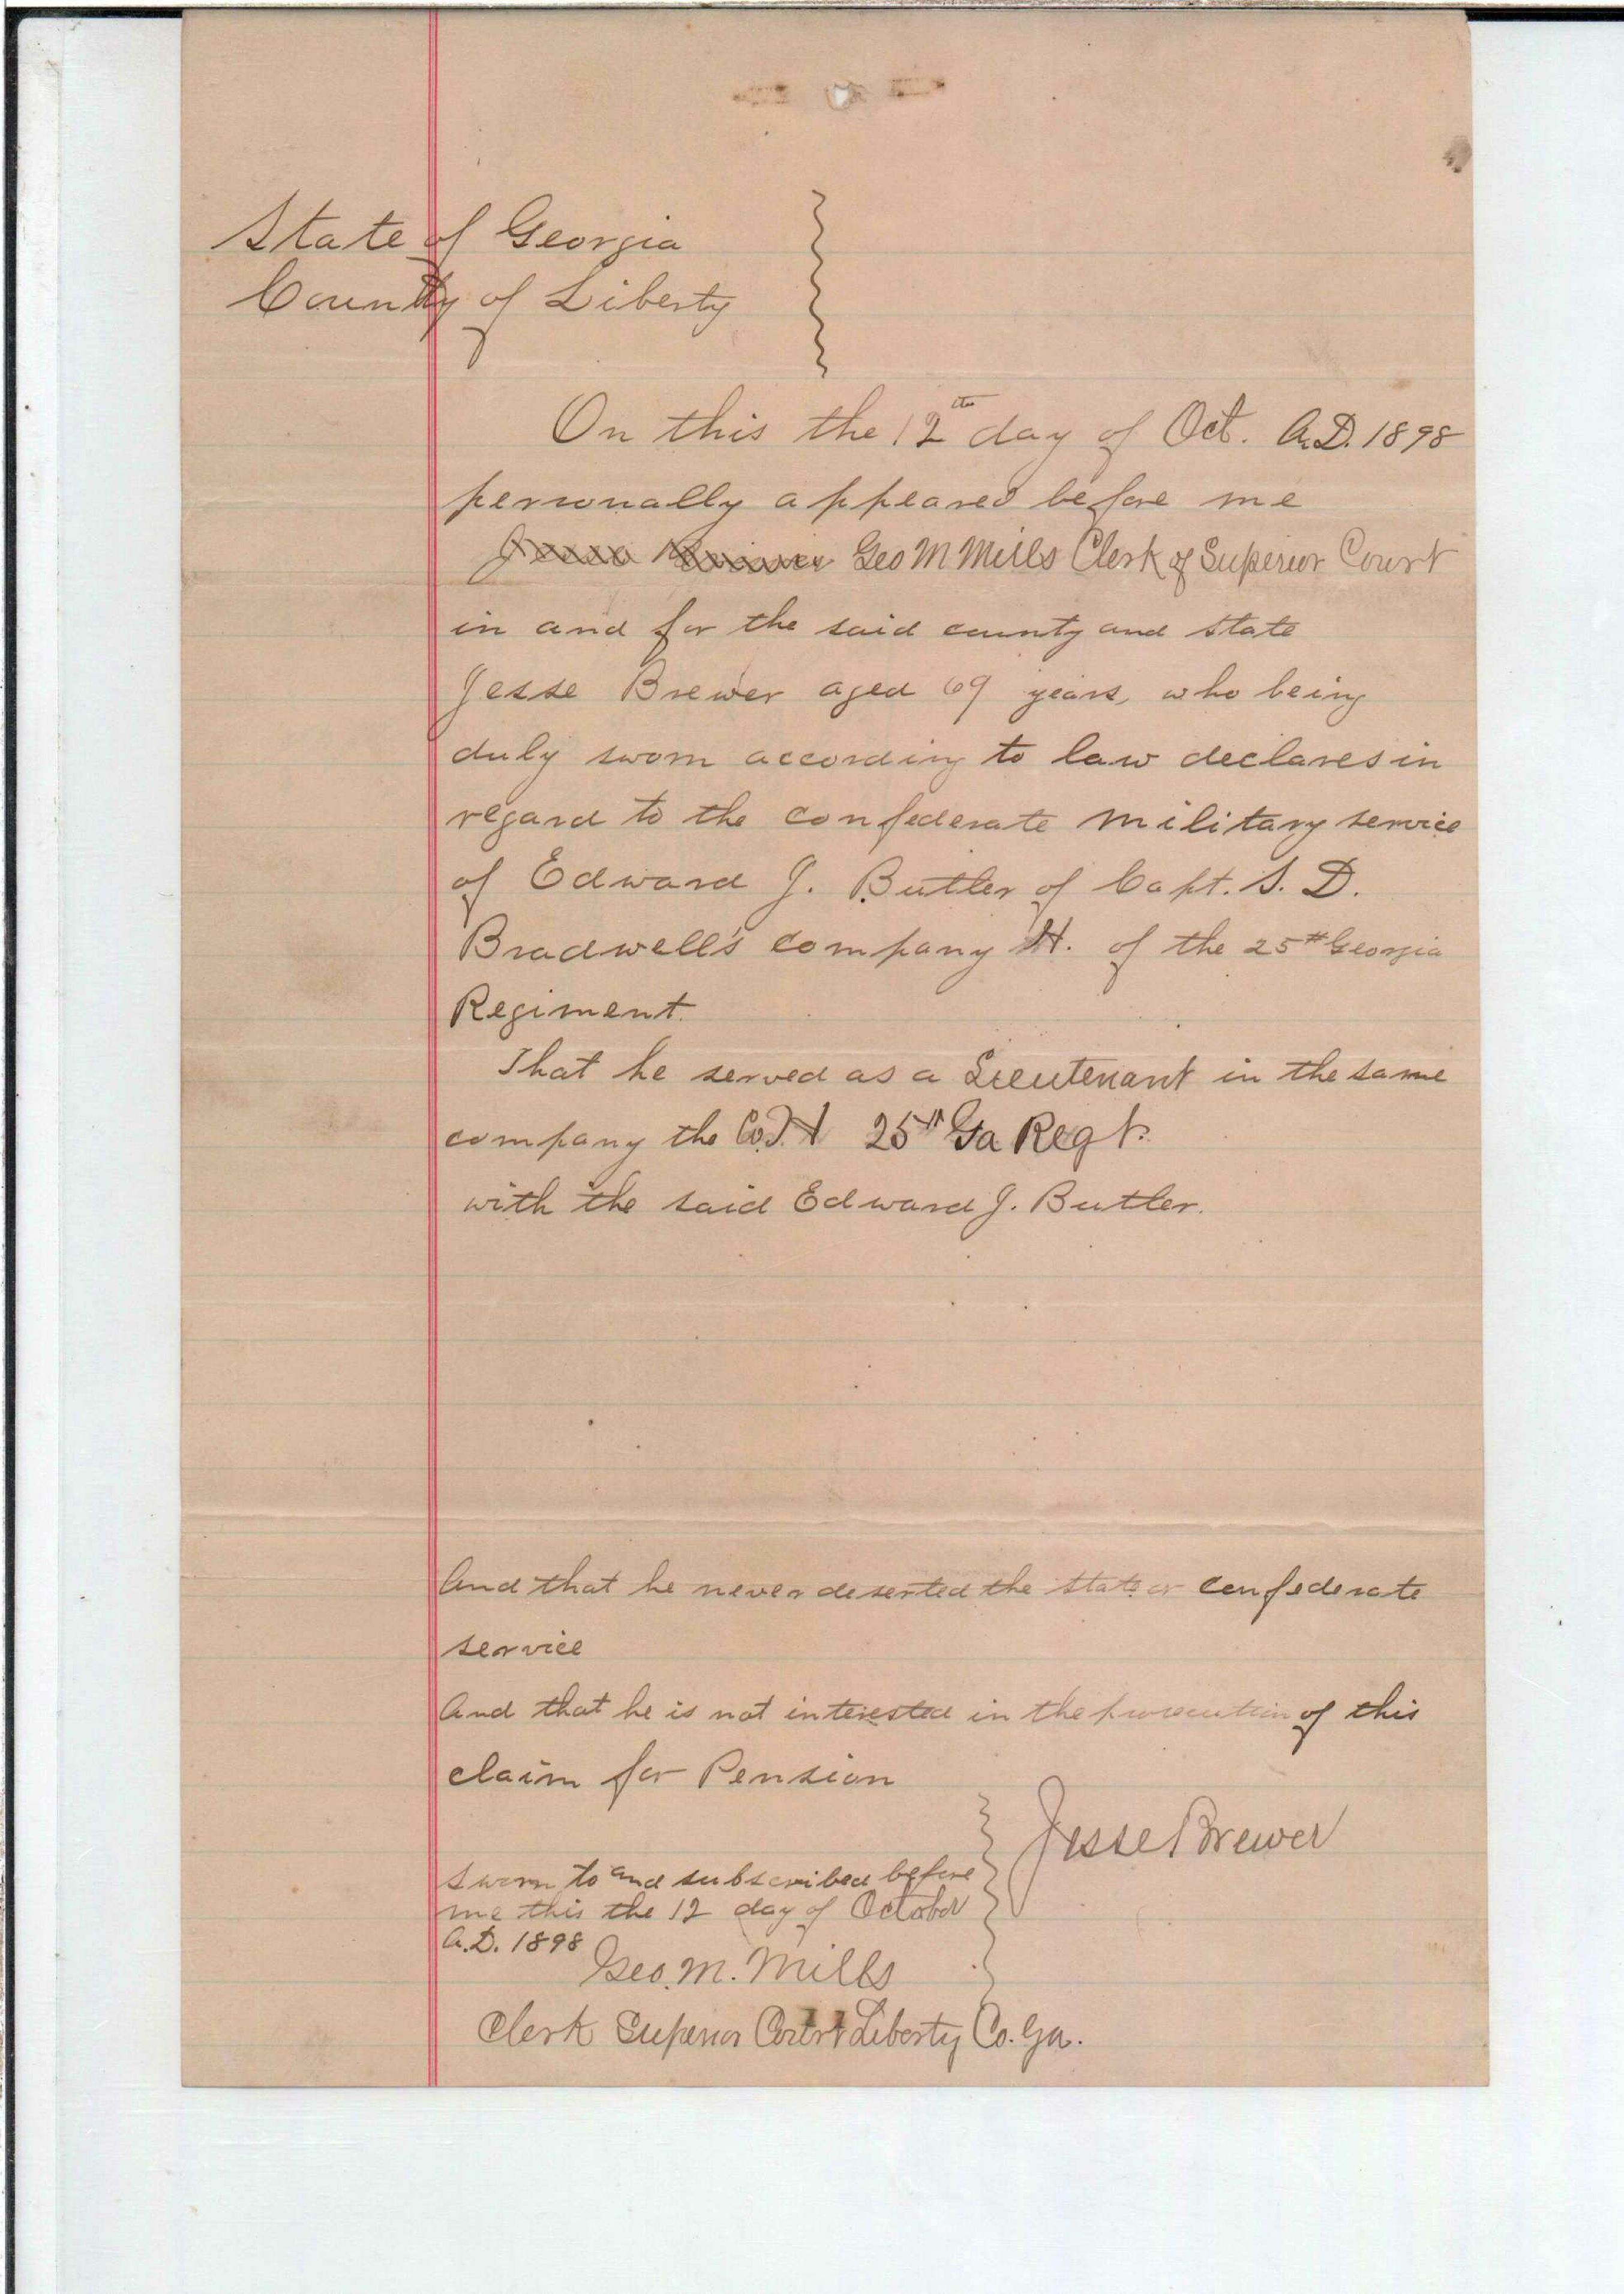 State of Georgia
County of Liberty
On this the 12th day of Oct. A.D. 1898
personally appeared before me
Jesse Brewer Geo M Mills Clerk of Superior Court
in and for the said county and state
Jesse Brewer aged 69 years, who being
duly sworn according to law declares in
regard to the confederate military service
of Edward J. Butler of Capt. S. D.
Bradwell's company H. of the 25th Georgia
Regiment.
That he served as a Lieutenant in the same
company the Co. H 25th Ga Regt.
with the said Edward J. Butler.
And that he never deserted the state or confederate
service
And that he is not interested in the prosecution of this
claim for Pension
Jesse Brewer
Sworn to and subscribed before
me this the 12 day of October
A.D. 1898
Geo. M. Mills
Clerk Superior Court Liberty Co. Ga.